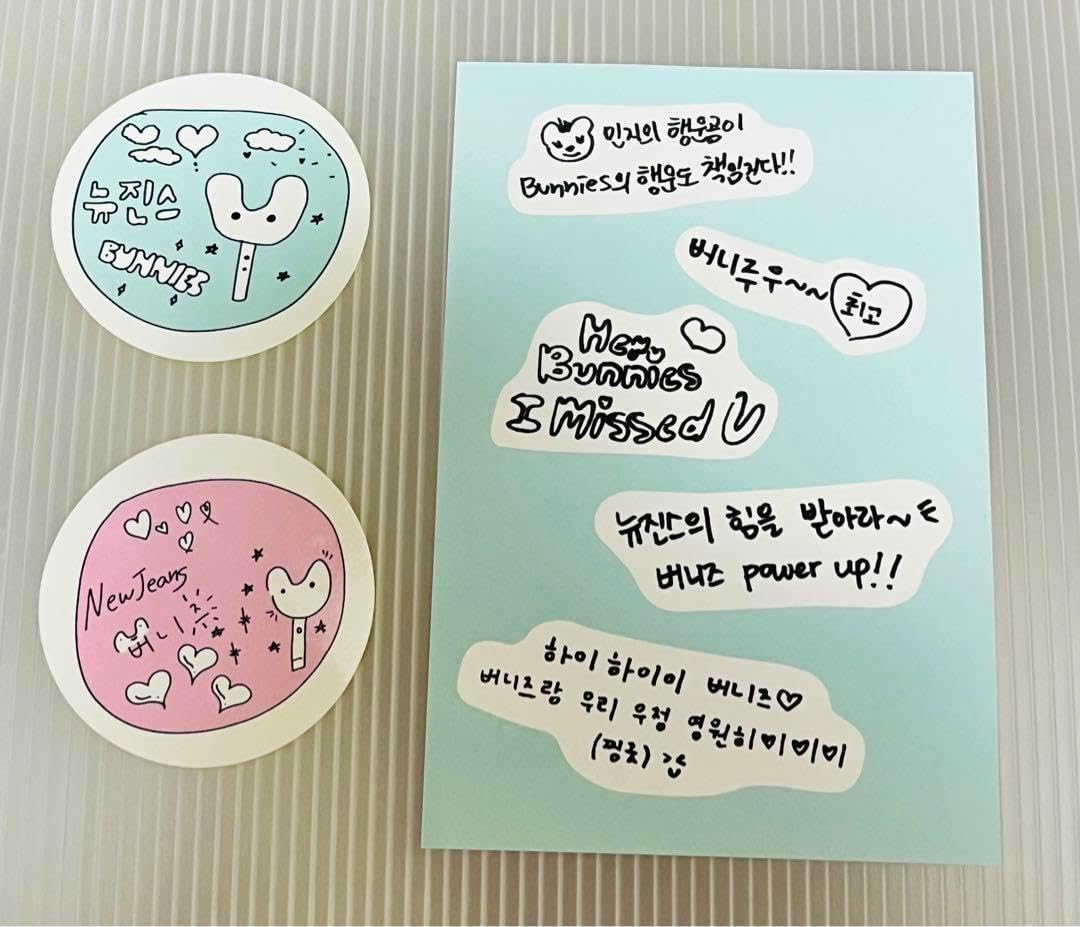 뉴진스
BUNNIES
NewJeans
버니즈
민지의 행운곰이
Bunnies의 행운도 책임진다!!
버니루우~~ 최고
Hey
Bunnies
I Missed U
뉴진스의 힘을 받아라~
버니즈 power up!!
하이 하이이 버니즈♡
버니즈랑 우리 우정 영원히♥♥♥
(찡긋)